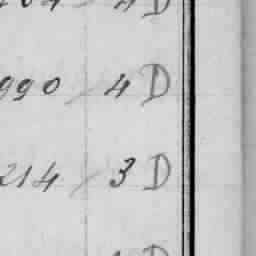 990 4 D
214 3 D